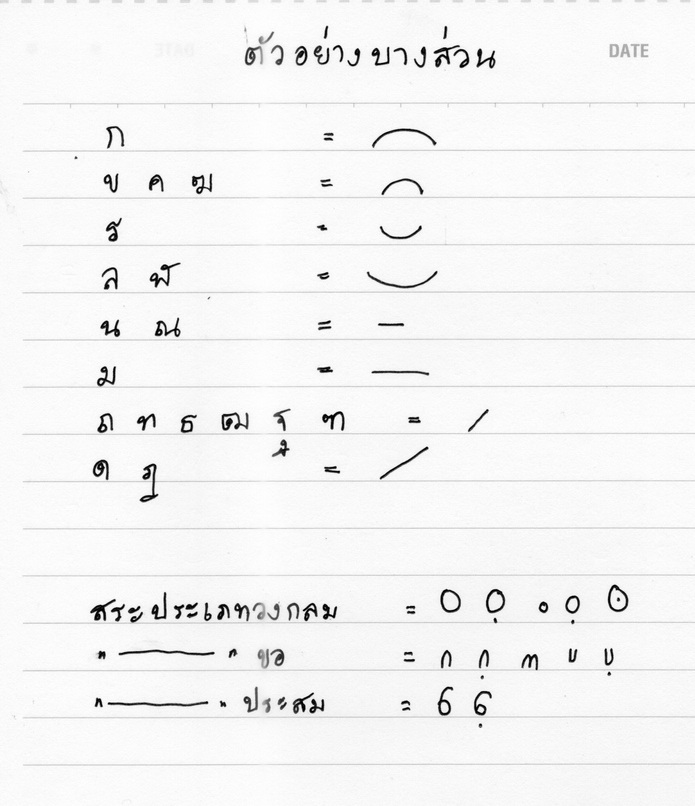 ตัวอย่างบางส่วน DATE
ก =
ข ค ฆ =
ร =
ล ฬ =
น ณ =
ม =
ถ ท ธ ฒ ฐ ฑ =
ด ฎ =
สระประเภทวงกลม =
" ——— " ขอ =
" ——— " ประสม =